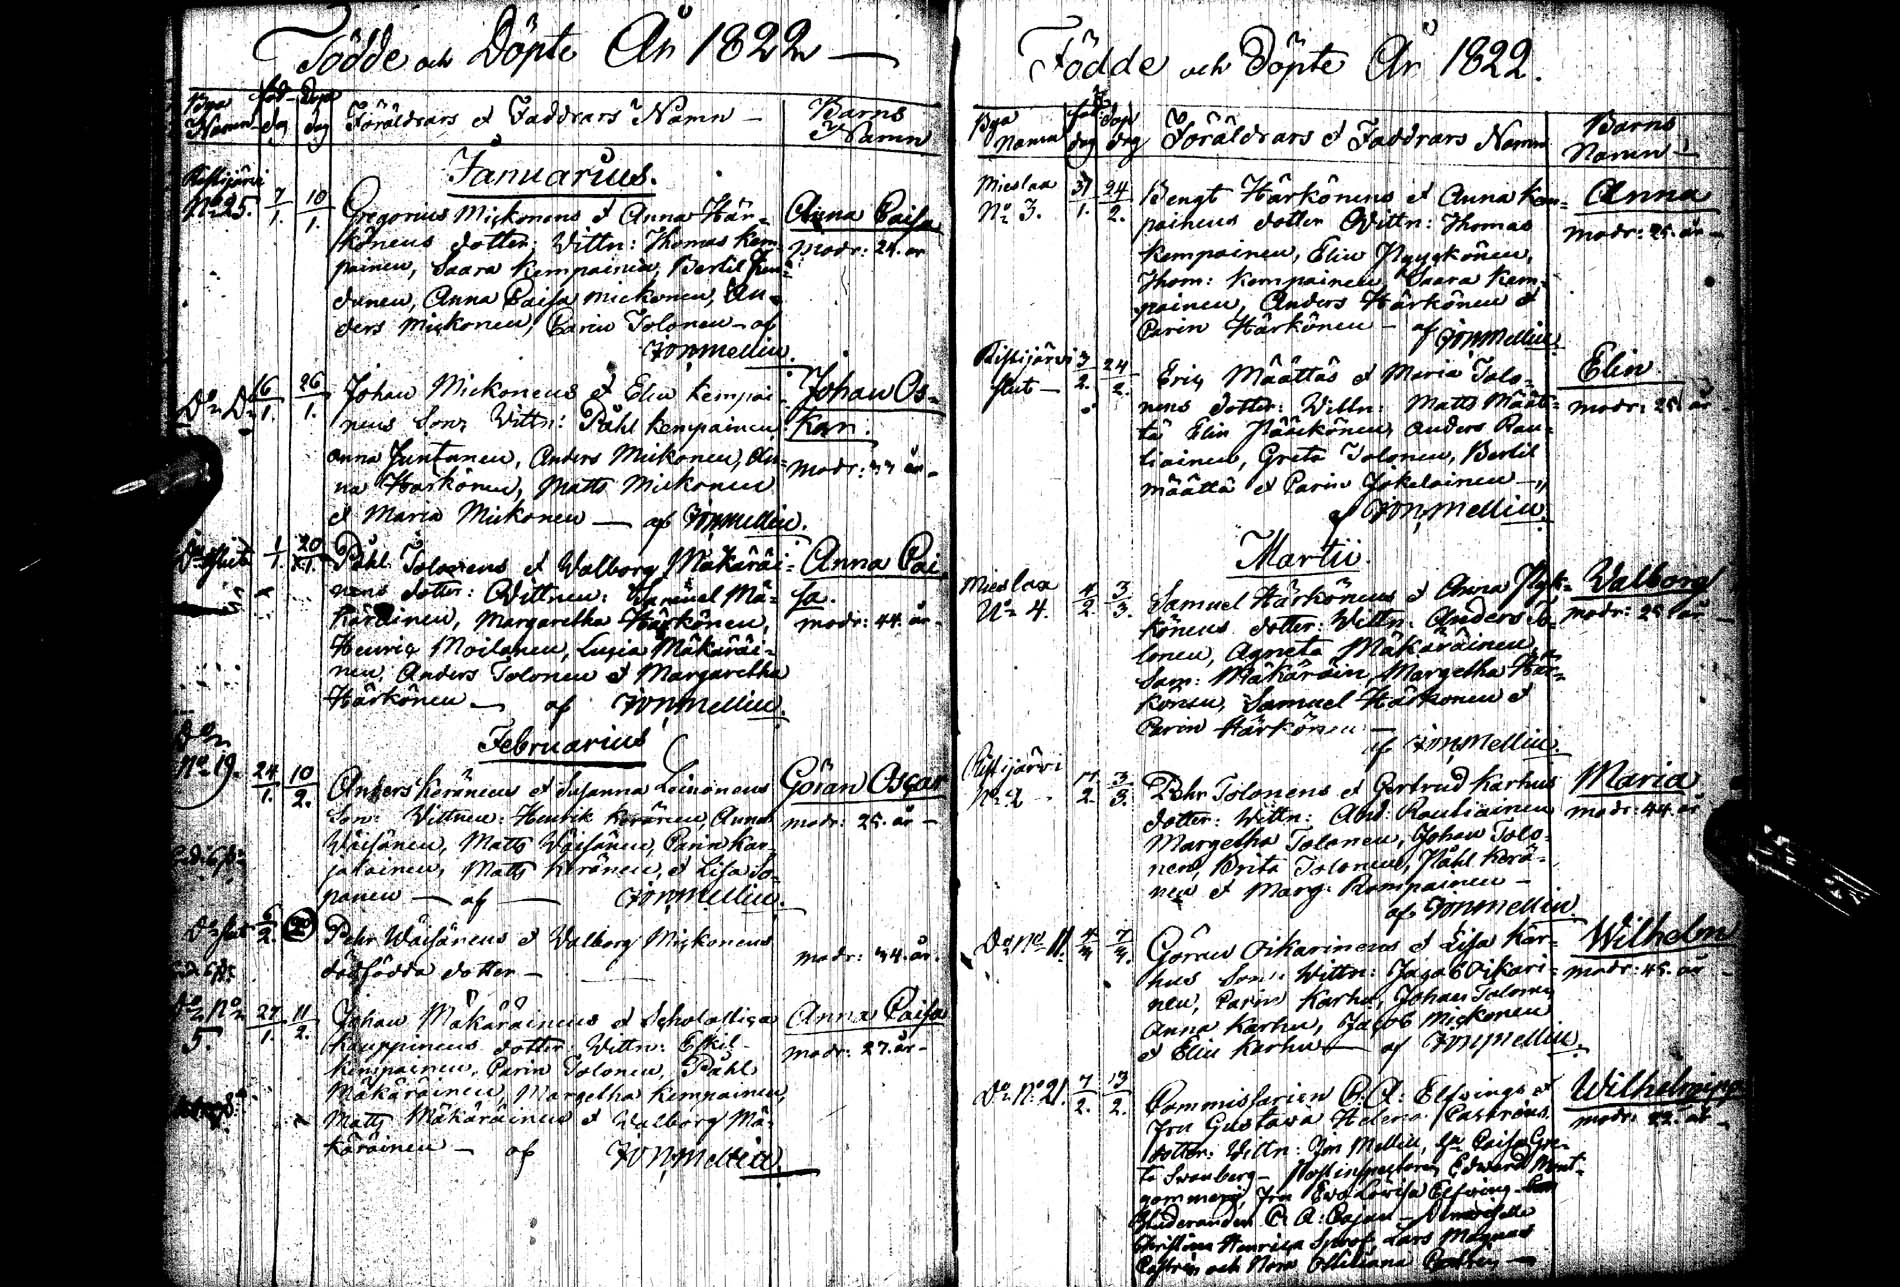 Födde och Döpte År 1822 —
Bya Namn
föd- dag
Döpe dag
Föräldrars et Faddrars Namn —
Barns Namn
Januarius.
Ristijärvi
No 25. 7/1. 10/1.
Gregorius Mickonens et Anna Här-
könens dotter. Wittn: Thomas Kem-
painen, Saara Kempainen, Bertil
Anna Caisa Mickonen, An-
ders Mickonen, Carin Tolonen — af
Mellin.
Anna Caisa
modr: 24. år
Do Do 16/1. 26/1.
Johan Mickonens et Elin Kempai-
nens Son. Wittn: Påhl Kempainen,
Anna Juntunen, Anders Mickonen, An-
na Harkönen, Matts Mickonen
et Maria Mickonen — af Mellin.
Johan Os-
kar.
modr: 33 år —
1/1. 20/1.
Påhl Tolonens et Walborg Mäkäräi-
nens dotter: Wittnen: Samuel Mä-
käräinen, Margaretha Härkönen,
Henric Moilanen, Lucia Mäkäräi-
nen, Anders Tolonen et Margaretha
Härkönen — af Mellin.
Anna Cai-
sa.
modr: 44. år —
Februarius
Do
No 19. 24/1. 10/2.
Anders Keränens et Susanna Leinonens
Son: Wittnen: Henrik Keränen, Anna
Wäisänen, Matts Wäisänen, Carin Kar-
jalainen, Matts Keränen, et Lisa So-
panen — af — Mellin.
Göran Oscar
modr: 25. år —
6/2.
Pehr Wäisänens et Walborg Mickonens
dödfödda dotter —
modr: 34. år.
Do No
5. 27/1. 11/2.
Johan Mäkäräinens et Scholastica
Kauppinens dotter: Wittn: Eskil
Kempainen, Carin Tolonen, Påhl
Mäkäräinen, Margetha Kempainen,
Matts Mäkäräinen et Walborg Mä-
käräinen — af Mellin.
Anna Caisa
modr: 27. år —
Födde och Döpte År 1822.
Bya Namn
föd: dag
döp dag
Föräldrars et Faddrars Namn
Barns Namn —
Mieslax
No 3. 31/1. 24/2.
Bengt Härkönens et Anna Kem-
painens dotter Wittn: Thomas
Kempainen, Elin Pyykönen,
Thom: Kempainen, Saara Kem-
painen, Anders Härkönen et
Carin Härkönen — af Mellin.
Anna
modr: 25. år —
Ristijärvi 3/2. 24/2.
Eric Määttäs et Maria Tolo-
nens dotter: Wittn: Matts Määt-
tä Elin Pääkönen, Anders Rau-
tiainen, Greta Tolonen, Bertil
Määttä et Carin Jokelainen —
af Mellin.
Elin
modr: 25 år
Martii.
Mieslax
No 4. 4/2. 3/3.
Samuel Härkönens et Anna Pyk-
könens dotter: Wittn: Anders To-
lonen, Agneta Mäkäräinen,
Sam: Mäkäräin, Margetha Här-
könen, Samuel Härkönen et
Carin Härkönen —
af Mellin.
Walborg
modr: 25 år —
Ristijärvi
No 2 17/2. 3/3.
Pehr Tolonens et Gertrud Karhus
dotter: Wittn: And: Rautiainen
Margetha Tolonen, Johan Tolo-
nen, Brita Tolonen, Påhl Kerä-
nen et Marg: Kempainen —
af Mellin
Maria
modr: 44. år
Do No 11. 4/3 7/3.
Göran Oikarinens et Lisa Kar-
hus Son: Wittn: Jacob Oikari-
nen, Carin Karhu, Johan Tolonen
Anna Karhu, Jacob Mickonen
et Elin Karhu — af Mellin.
Wilhelm
modr: 45. år —
Do No 21. 7/2. 13/2.
Commissarien C. A: Elfvings et
Fru Gustava Helena Castréns
dotter: Wittn: Mellin, Caisa Gre-
ta Swanberg — Postinspectoren Edward Mont-
gommeri, Fru Eva Lovisa Elfving
Studeranden C. A: Cajan — Demoiselle
Christina Henrica Lars Magnus
Castrén och
Wilhelmina
modr: 22. år —